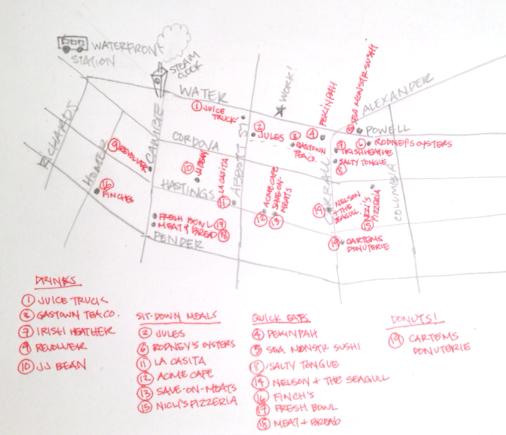 WATERFRONT
STATION
STEAM
CLOCK
WATER
① JUICE
TRUCK
WORK!
PEKINPAH
SEA MONSTR SUSHI
ALEXANDER
POWELL
② JULES
③ GASTOWN
TEA CO.
④
⑥ RODNEY'S OYSTERS
⑦ IRISH HEATHER
⑧ SALTY TONGUE
RICHARDS
HOMER
CAMBIE
ABBOTT ST
CARRALL
COLUMBIA
CORDOVA
⑨ REVOLVER
⑩ JJ BEAN
HASTINGS
⑪ LA CASITA
⑫ ACME CAFE
⑬ SAVE-ON-
MEATS
⑭ NELSON
+ THE
SEAGULL
⑮ NICLI'S
PIZZERIA
⑯
FINCH'S
FRESH BOWL ⑰
MEAT & BREAD ⑱
PENDER
⑲ CARTEMS
DONUTERIE
DRINKS
① JUICE TRUCK
③ GASTOWN TEA CO.
⑦ IRISH HEATHER
⑨ REVOLVER
⑩ JJ BEAN
SIT-DOWN MEALS
② JULES
⑥ RODNEY'S OYSTERS
⑪ LA CASITA
⑫ ACME CAFE
⑬ SAVE-ON-MEATS
⑮ NICLI'S PIZZERIA
QUICK EATS
④ PEKINPAH
⑤ SEA MONSTR SUSHI
⑧ SALTY TONGUE
⑭ NELSON + THE SEAGULL
⑯ FINCH'S
⑰ FRESH BOWL
⑱ MEAT + BREAD
DONUTS!
⑲ CARTEMS
DONUTERIE